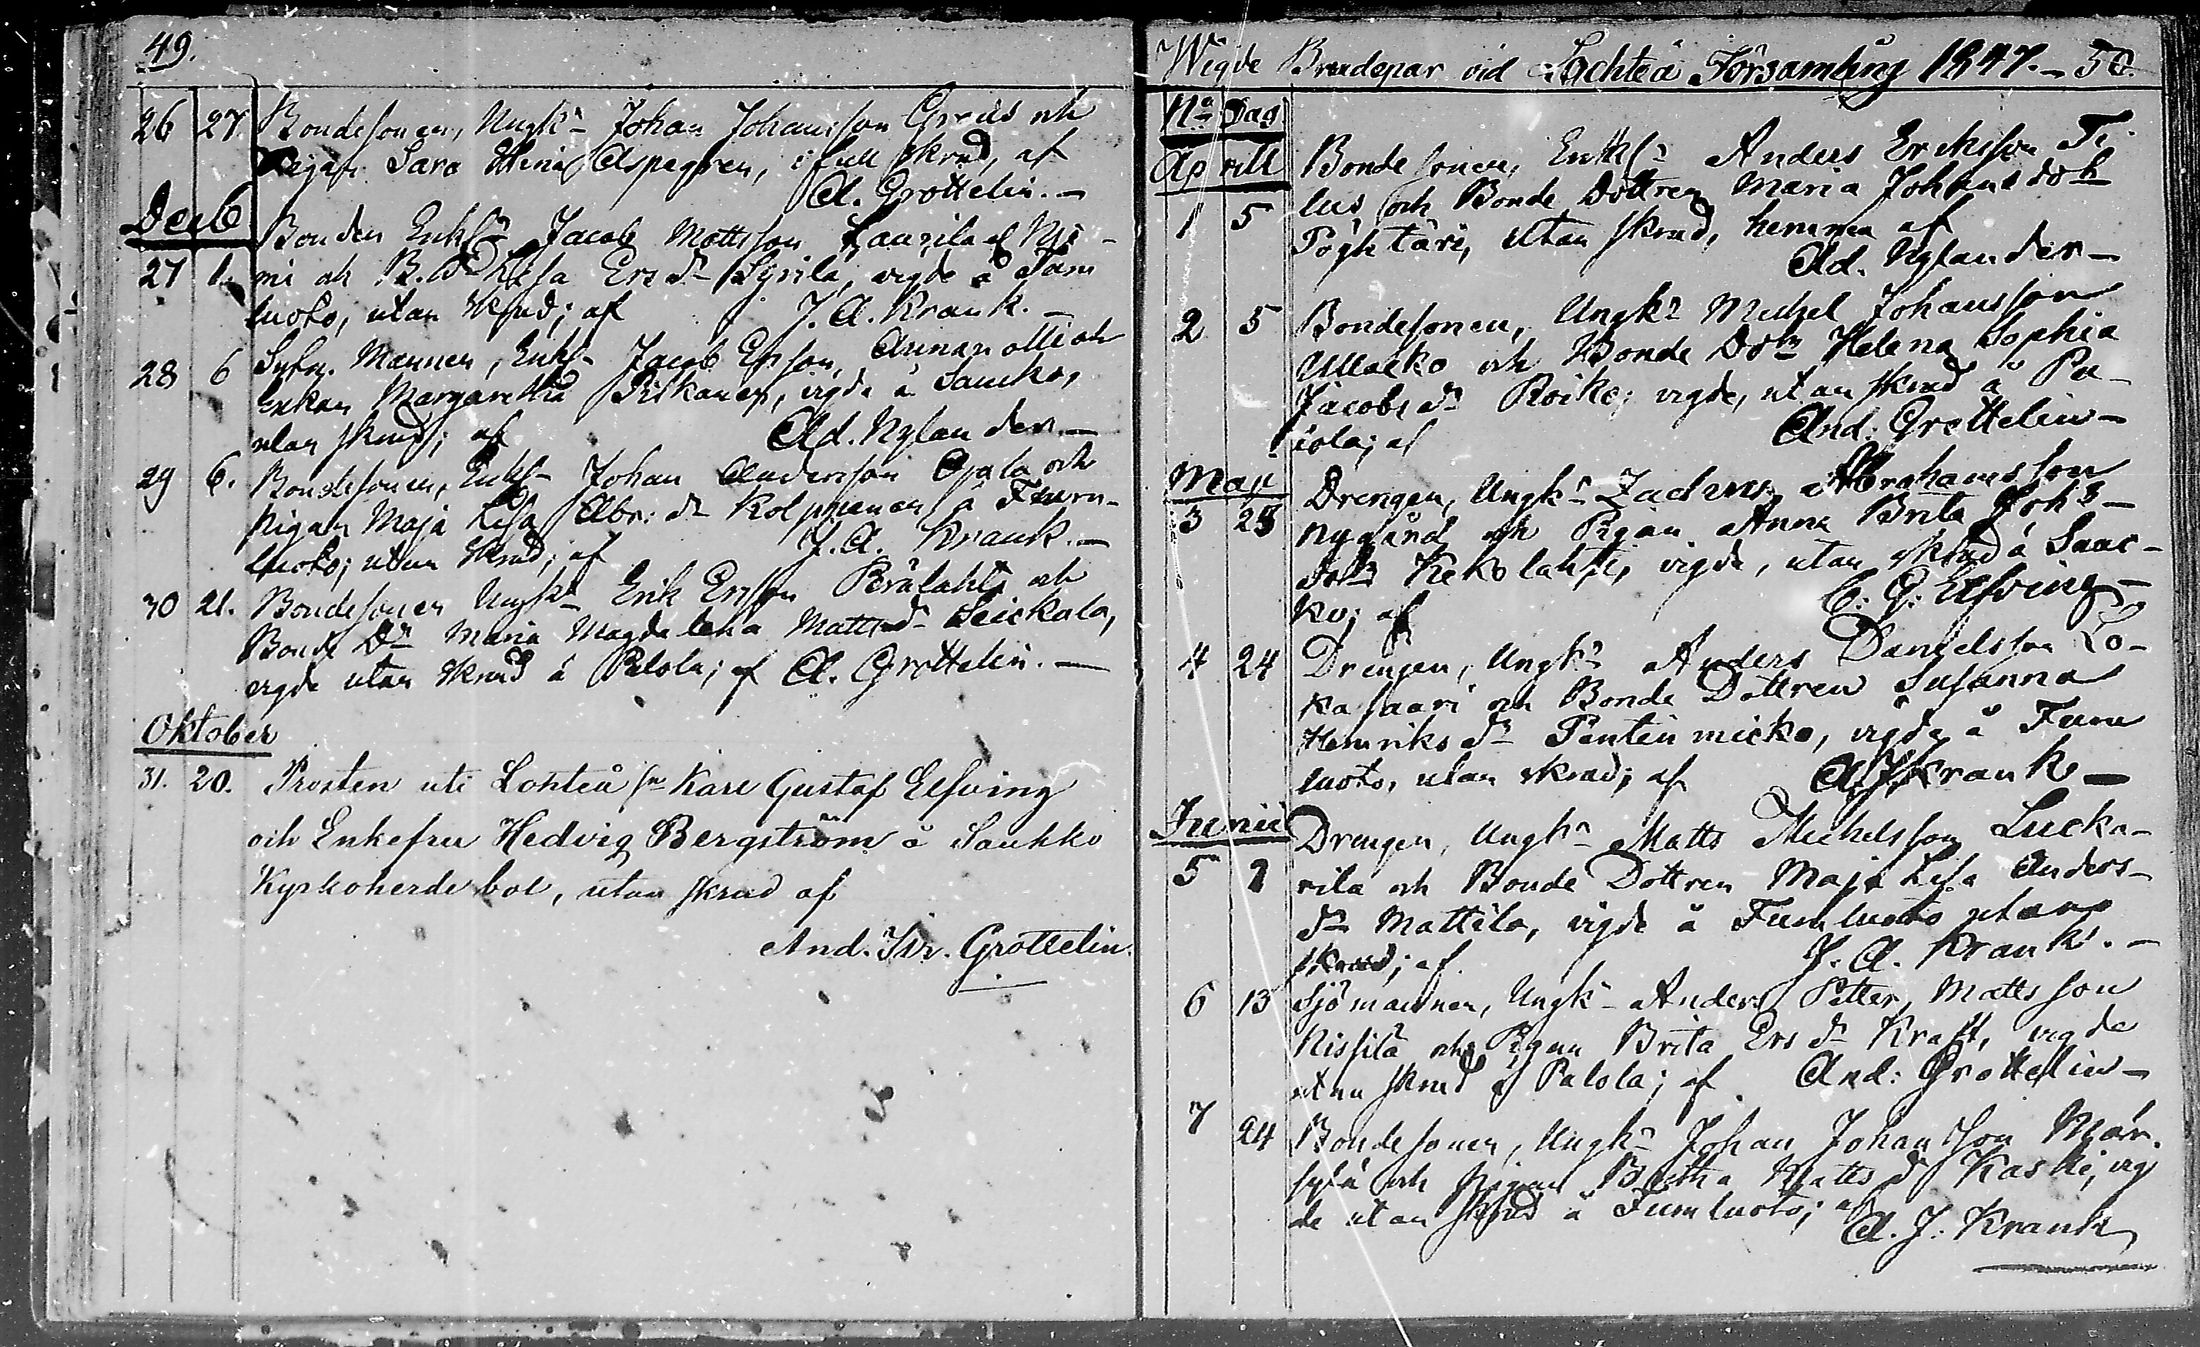 49.
26 27 Bondesonen, Ungk:n Johan Johansson Greus och
Pigan Sara Stina Aspegren, i full skrud, af
A. Grottelin. –
Decb
Bonden Enkl:n Jacob Mattsson Laurila el. Nie-
27 1. mi och B. D:r Lisa Ers d:r Syrilä, vigde å Fum
luoto, utan skrud; af J. A. Krank. –
28 6 Mannen, Enkl:n Jacob Ersson Annanolli och
Enkan Margaretha Piskanen, vigde å Saucko,
utan skrud; af Ad. Nylander. –
29 6. Bondesonen, Enkl:n Johan Andersson Ojala och
Pigan Maja Lisa Abr: d:r Kolppanen å Fum-
luoto; utan skrud; af J. A. Krank. –
30 21. Bondesonen Ungk:n Erik Ersson Perälahti och
Bonde D:r Maria Magdalena Matts d:r Leickala,
vigde utan skrud å Palola; af A. Grottelin. –
Oktober
31. 20. Prosten uti Lohteå s:n Karl Gustaf Elfving
och Enkefru Hedvig Bergström å Saukko
Kyrkoherde bol, utan skrud af
And. Joh. Grottelin.
Wigde Brudepar vid Lochteå Församling 1847. – 50.
N:o Dag
Aprill Bondesonen, Enkl:n Anders Eriksson Ti-
lus och Bonde Dottren Maria Johans dot:r
1 5 Pöghtäri, utan skrud, hemma af
Ad. Nylander –
2 5 Bondesonen, Ungk:n Michel Johansson
Ullacko och Bonde Dot:r Helena Sophia
Jacobs d:r Roiko; vigde, utan skrud å Pa-
lola; af And: Grottelin –
Maji Drengen, Ungk:n Zachris Abrahamsson
3 23 Nygård och Pigan Anna Brita Joh:s –
dot:r Kekolahti, vigde, utan skrud å Sauc-
ko; af C. G. Elfving –
4 24 Drengen, Ungk:n Anders Danielsson Lo-
kasaari och Bonde Dottren Susanna
Henriks d:r Pentinmicko, vigde å Fum
luoto, utan skrud; af A. J. Krank –
Junii Drengen, Ungk:n Matts Michelsson Lucka-
5 7 rila och Bonde Dottren Maja Lisa Anders-
d:r Mattila, vigde å Fumluoto utan
skrud; af J. A. Krank. –
6 13 Sjömannen, Ungk:n Anders Petter Mattsson
Nissilä och Pigan Brita Ers d:r Kraft, vigde
utan skrud å Palola; af And: Grottelin –
7 24 Bondesonen, Ungk:n Johan Johansson Mär-
sylä och Pigan Britha Matts d:r Kaski, vig
de utan skrud å Fumluoto; af
A. J. Krank